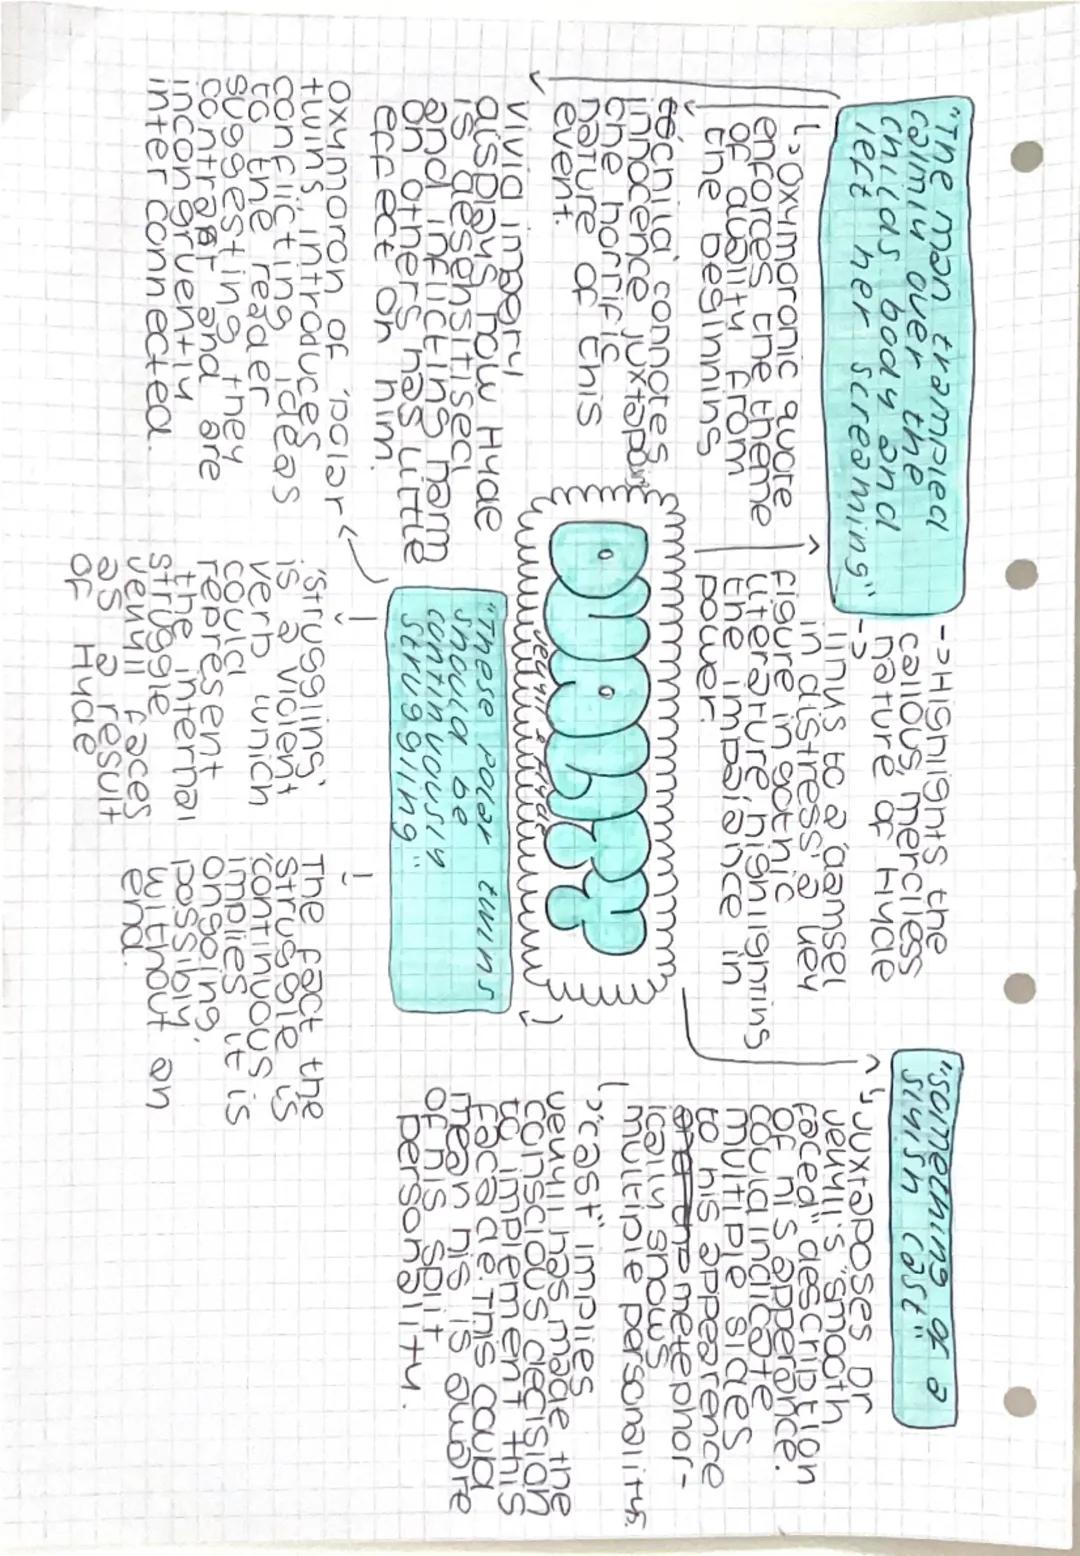 "The man trampled
calmly over the
childs body and
left her screaming"
->Highlights the
callous, merciless
nature of Hyde
->
links to a 'damsel
in distress' a key
figure in gothic
literature, highlighting
the imbalance in
power.
↳Oxymoronic quote
enforces the theme
of duality from
the beginning
'child' connotes
innocence, juxtapos
the horrific
nature of this
event.
vivid imgery
displays how Hyde
is desensitised,
and inflicting harm
on others has little
effect on him.
DUALITY
Jekyll & Hyde
"something of a
slyish cast"
↳Juxtaposes Dr
Jekyll's "smooth
faced" description
of his apperance.
could indicate
multiple sides
to his appearence
metephor-
ically shows
multiple personalitys.
↳"cast" implies
Jekyll has made the
conscious decision
to implement this
facade. This could
mean his is aware
of his split
personality.
"These polar twins
should be
continuously
struggling"
oxymoron of 'polar
twins' introduces
conflicting ideas
to the reader
suggesting they
contrast and are
incongruently
interconnected.
'struggling'
is a violent
verb which
could
represent
the internal
struggle
Jekyll faces
as a result
of Hyde
The fact the
struggle is
'continuous'
implies it is
ongoing,
possibly
without an
end.